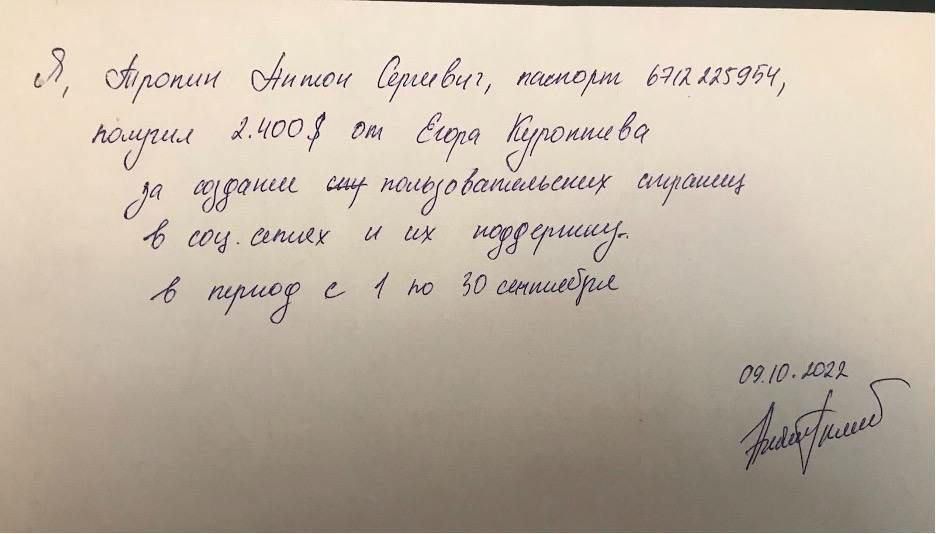 Я, Тропин Антон Сергеевич, паспорт 6712 225954,
получил 2.400$ от Егора Куроптева
за создание пользовательских страниц
в соц. сетях и их поддержку.
в период с 1 по 30 сентября
09.10.2022